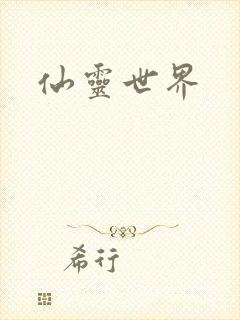 仙靈世界
希行